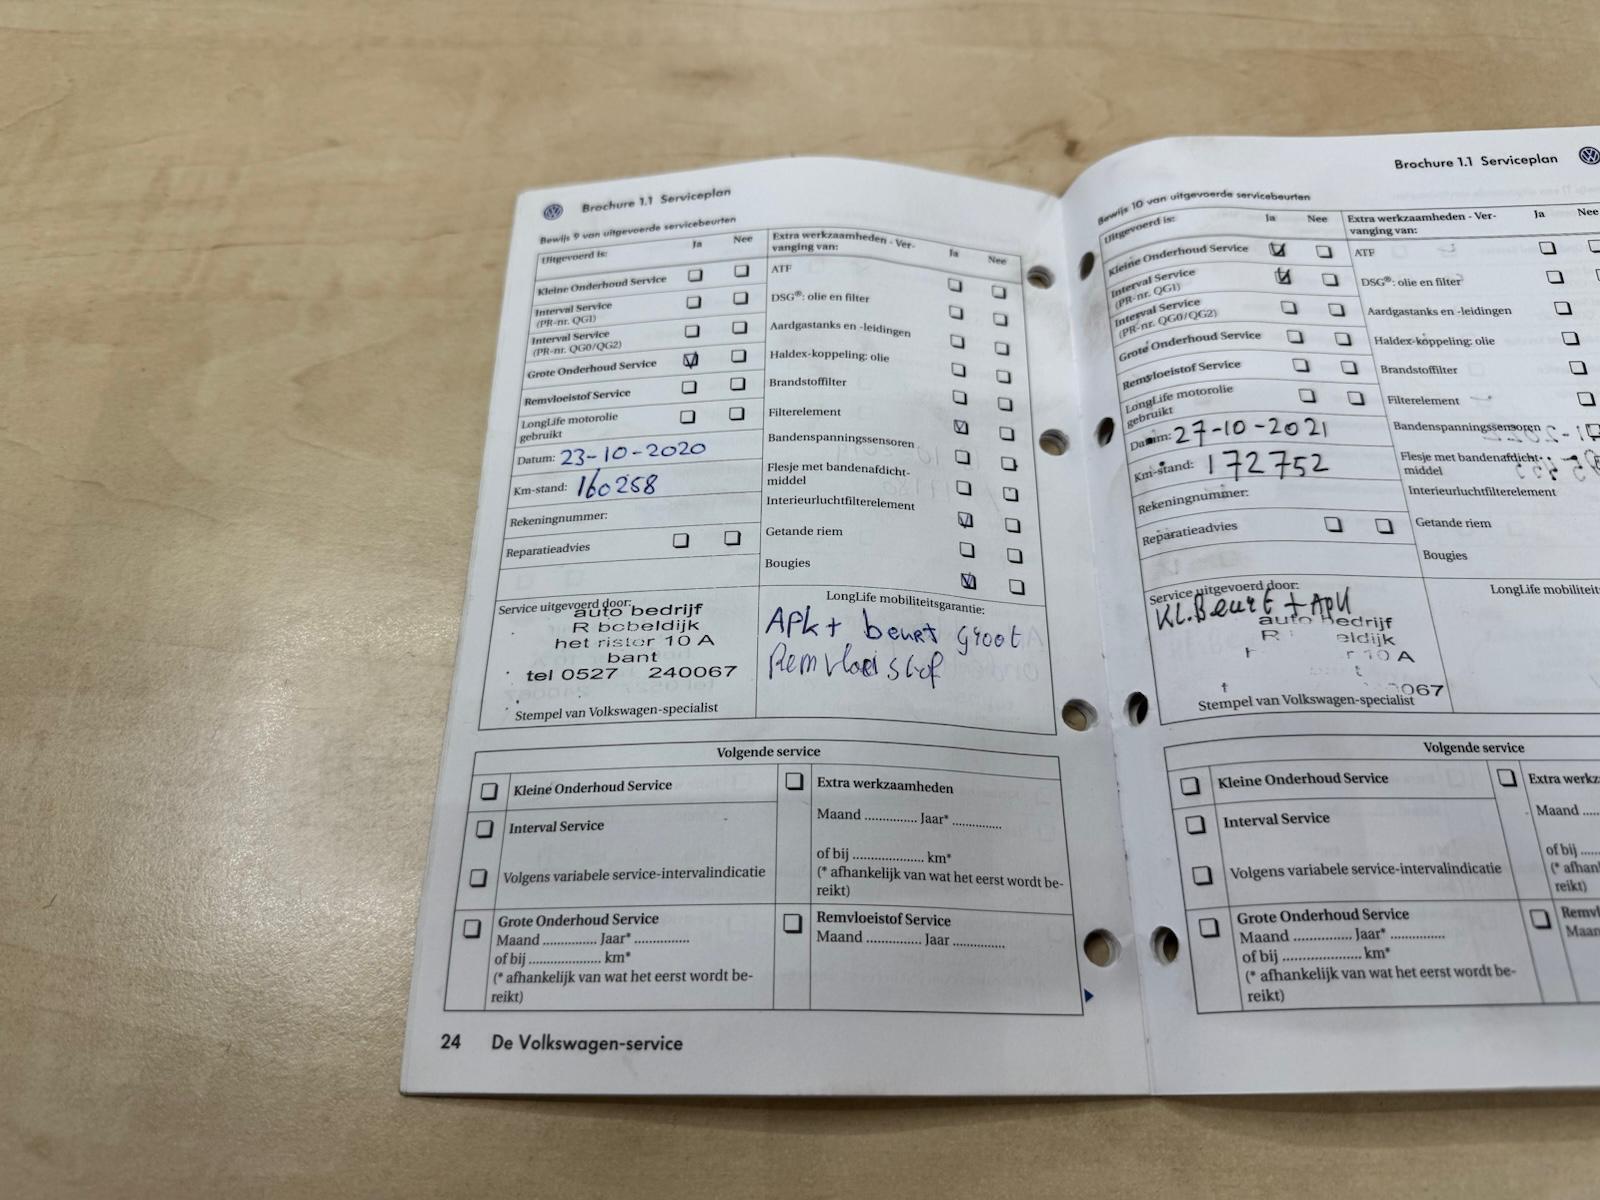 Brochure 1.1 Serviceplan
Bewijs 9 van uitgevoerde servicebeurten
Uitgevoerd is:
Ja
Nee
Kleine Onderhoud Service
Interval Service
(PR-nr. QG1)
Interval Service
(PR-nr. QG0/QG2)
Grote Onderhoud Service
Remvloeistof Service
LongLife motorolie
gebruikt
Datum: 23-10-2020
Km-stand: 160258
Rekeningnummer:
Reparatieadvies
Extra werkzaamheden - Ver-
vanging van:
Ja
Nee
ATF
DSG®: olie en filter
Aardgastanks en -leidingen
Haldex-koppeling: olie
Brandstoffilter
Filterelement
Bandenspanningssensoren
Flesje met bandenafdicht-
middel
Interieurluchtfilterelement
Getande riem
Bougies
Service uitgevoerd door:
auto bedrijf
R bobeldijk
het rister 10 A
bant
tel 0527 240067
Stempel van Volkswagen-specialist
LongLife mobiliteitsgarantie:
Apk + beurt groot
Remvloeistof
Volgende service
Kleine Onderhoud Service
Interval Service
Volgens variabele service-intervalindicatie
Grote Onderhoud Service
Maand .............. Jaar* ..............
of bij ................... km*
(* afhankelijk van wat het eerst wordt be-
reikt)
Extra werkzaamheden
Maand .............. Jaar* .............
of bij ................... km*
(* afhankelijk van wat het eerst wordt be-
reikt)
Remvloeistof Service
Maand .............. Jaar ..............
24 De Volkswagen-service
Brochure 1.1 Serviceplan
Bewijs 10 van uitgevoerde servicebeurten
Uitgevoerd is:
Ja
Nee
Kleine Onderhoud Service
Interval Service
(PR-nr. QG1)
Interval Service
(PR-nr. QG0/QG2)
Grote Onderhoud Service
Remvloeistof Service
LongLife motorolie
gebruikt
Datum: 27-10-2021
Km-stand: 172752
Rekeningnummer:
Reparatieadvies
Extra werkzaamheden - Ver-
vanging van:
Ja
Nee
ATF
DSG®: olie en filter
Aardgastanks en -leidingen
Haldex-koppeling: olie
Brandstoffilter
Filterelement
Bandenspanningssensoren
Flesje met bandenafdicht-
middel
Interieurluchtfilterelement
Getande riem
Bougies
Service uitgevoerd door:
Kl. Beurt + Apk
auto bedrijf
R eldijk
r 10 A
t
t 067
Stempel van Volkswagen-specialist
LongLife mobilite
Volgende service
Kleine Onderhoud Service
Interval Service
Volgens variabele service-intervalindicatie
Grote Onderhoud Service
Maand .............. Jaar* ..............
of bij ................... km*
(* afhankelijk van wat het eerst wordt be-
reikt)
Extra werkz
Maand .....
of bij .....
(* afhan
reikt)
Remvl
Maan